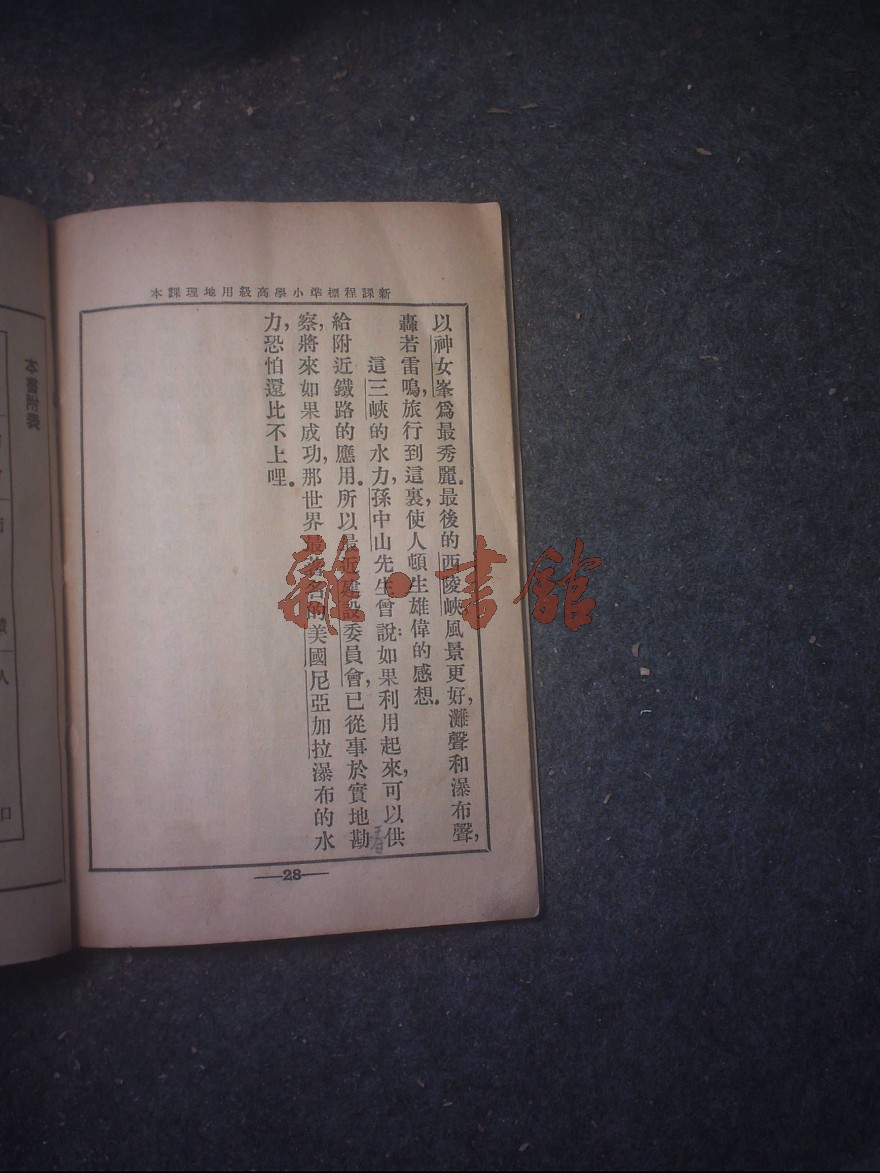 新課程標準小學高級用地理課本
以神女峯爲最秀麗。最後的西陵峽風景更好,灘聲和瀑布聲,
轟若雷鳴,旅行到這裏,使人頓生雄偉的感想。
這三峽的水力,孫中山先生曾說:如果利用起來,可以供
給附近鐵路的應用。所以最近建設委員會,已從事於實地勘
察,將來如果成功,那世界最著名的美國尼亞加拉瀑布的水
力,恐怕還比不上哩。
28
本書附表
人
口
雜·書館